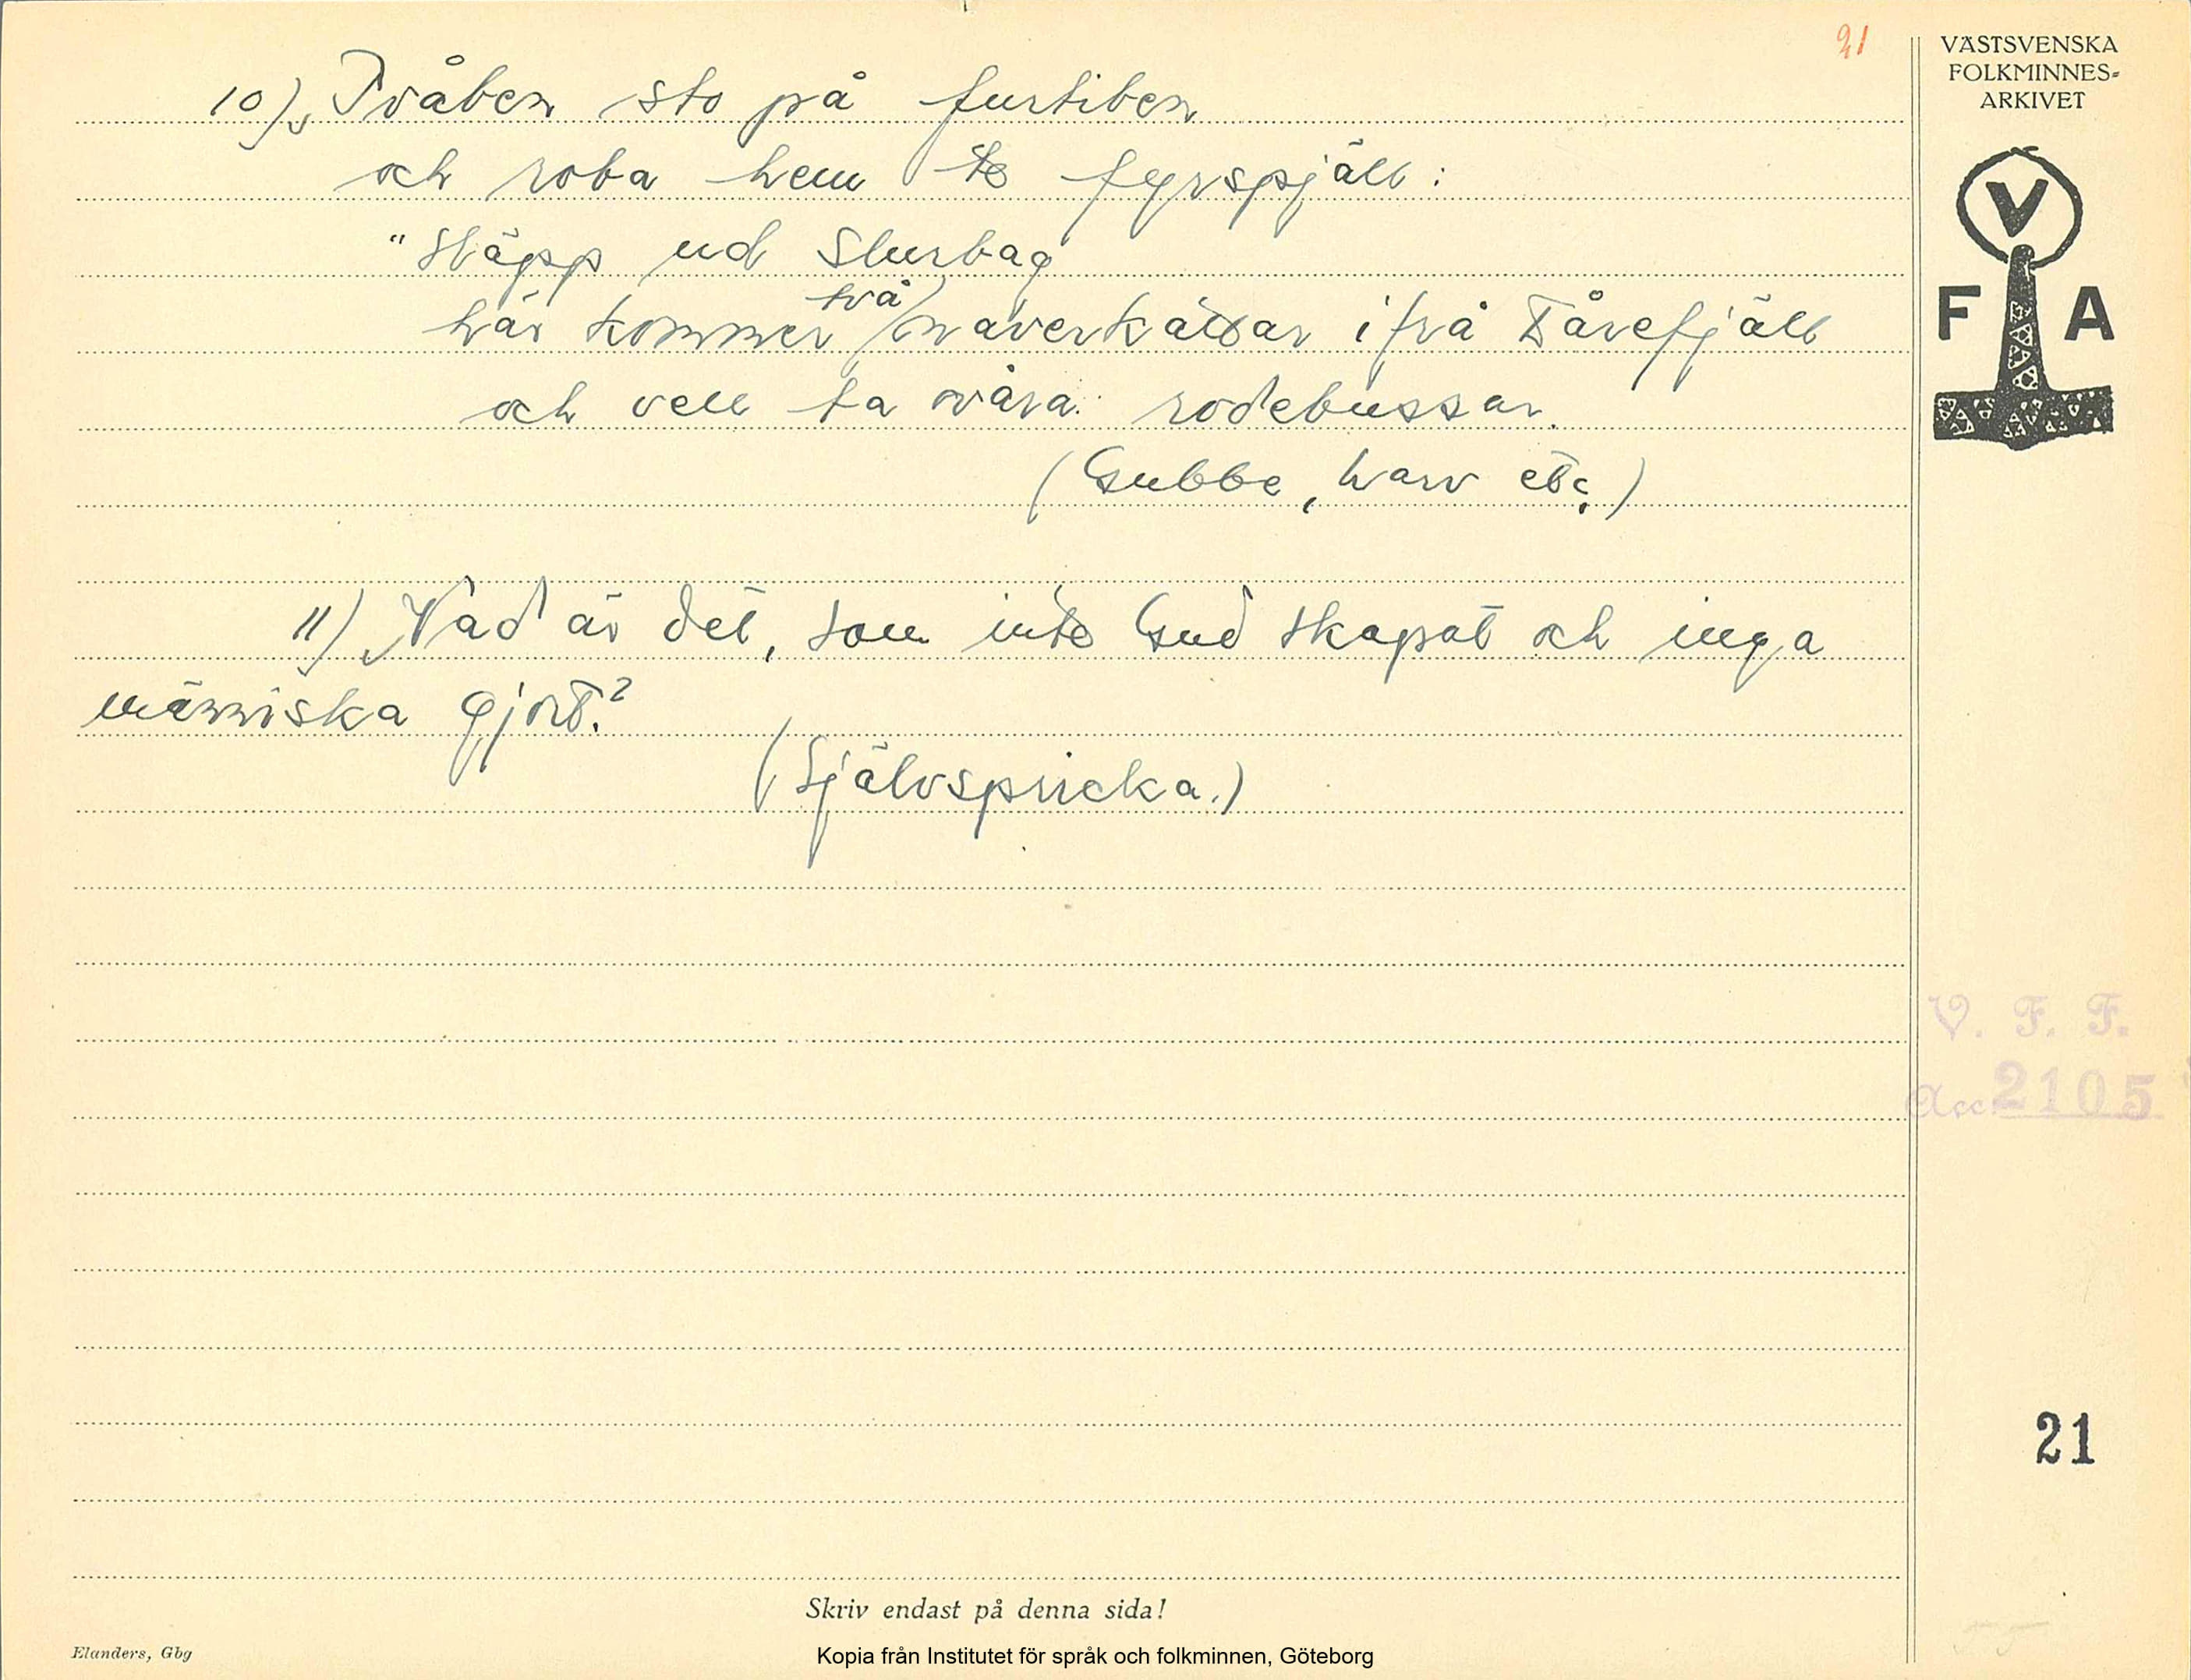 21
10) Tvåben sto på furtiben
och roba hem te fyrspjäll:
"Släpp ud Slurbag
här kommer två naverkättar ifrå Tårefjäll
och vell ta våra rodebussar.
(Gubbe, harv etc.)
11) Vad är det, som inte Gud skapat och inga
människa gjort?
(Självspricka.)
VÄSTSVENSKA
FOLKMINNES=
ARKIVET
V
F A
V. F. F.
Acc. 2105
21
Skriv endast på denna sida!
Elanders, Gbg
Kopia från Institutet för språk och folkminnen, Göteborg